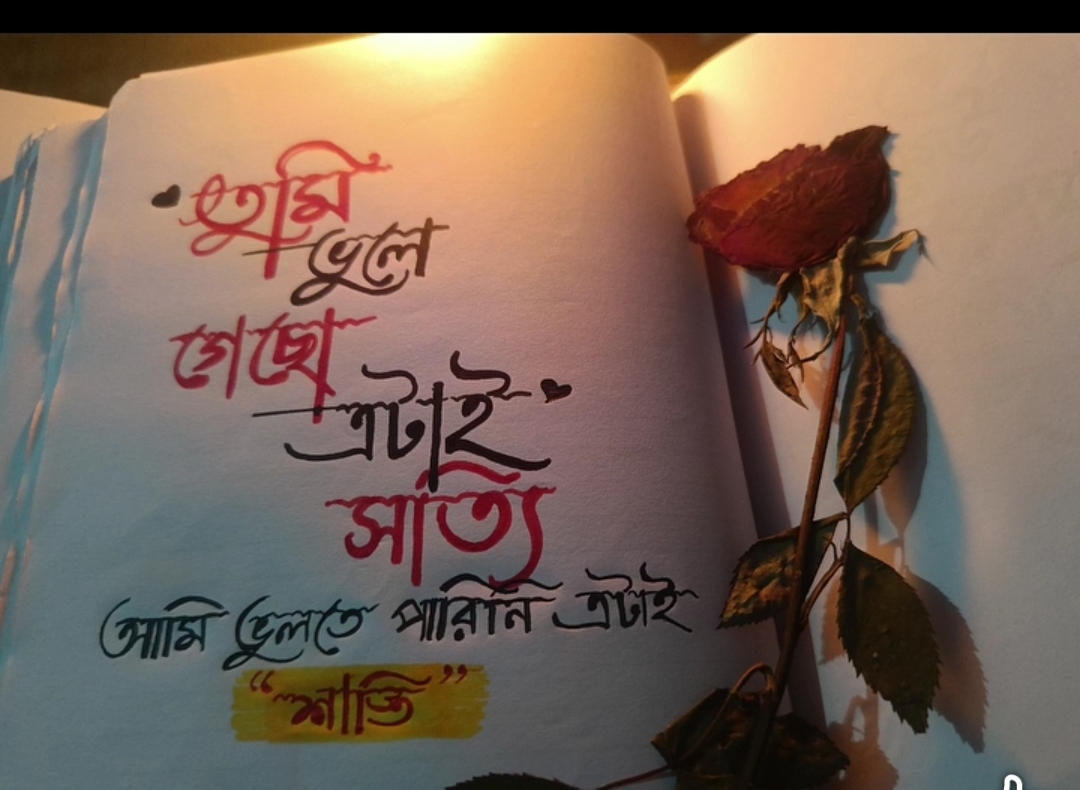 তুমি
ভুলে
গেছো
এটাই
সত্যি
আমি ভুলতে পারিনি এটাই
“শাস্তি”